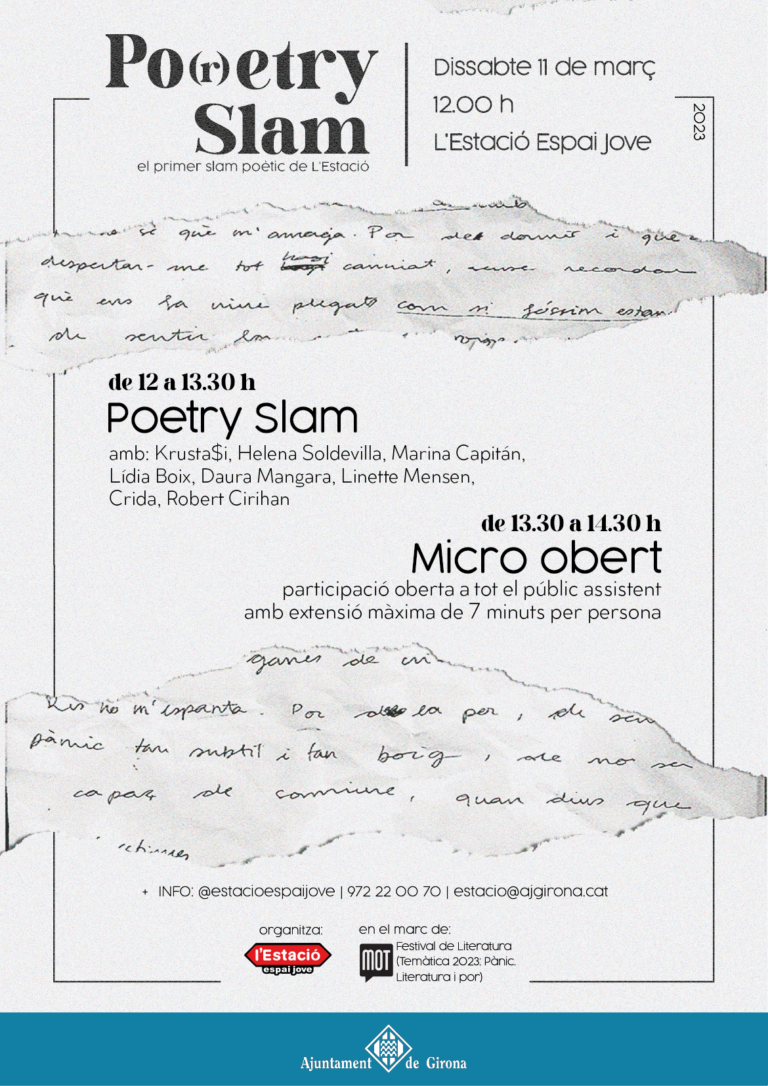 Po(r)etry
Slam
el primer slam poètic de L'Estació
Dissabte 11 de març
12.00 h
L'Estació Espai Jove
2023
no sé què m'amaga. Por de dormir i que
despertar-me tot canviat, sense recordar
què ens fa viure plegats com si fóssim estan
de sentir los
de 12 a 13.30 h
Poetry Slam
amb: Krusta$i, Helena Soldevilla, Marina Capitán,
Lídia Boix, Daura Mangara, Linette Mensen,
Crida, Robert Cirihan
de 13.30 a 14.30 h
Micro obert
participació oberta a tot el públic assistent
amb extensió màxima de 7 minuts per persona
ganes de cri
Res no m'espanta. Por de la por, de seu
pànic tan subtil i tan boig, de no ser
capaç de conviure, quan dius que
+ INFO: @estacioespaijove | 972 22 00 70 | estacio@ajgirona.cat
organitza:
l'Estació
espai jove
en el marc de:
MOT
Festival de Literatura
(Temàtica 2023: Pànic.
Literatura i por)
Ajuntament de Girona